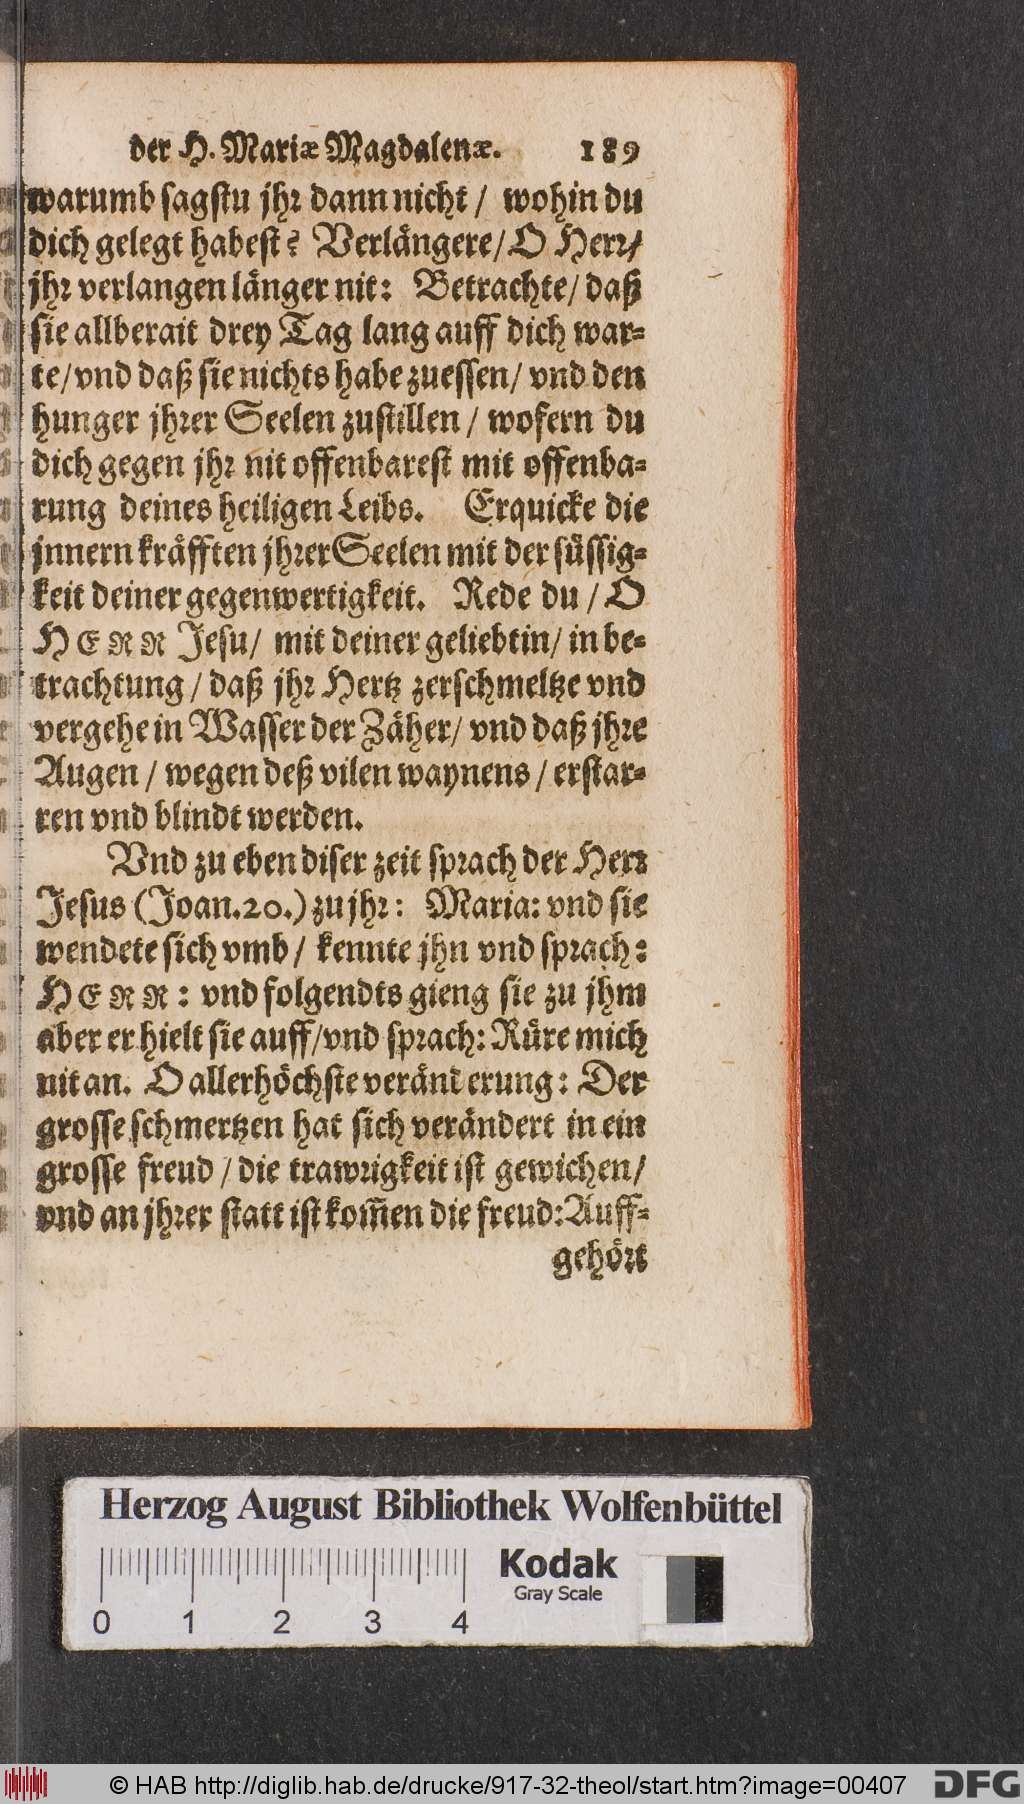 der H. Mariæ Magdalenæ. 189
warumb sagstu jhr dann nicht / wohin du
dich gelegt habest? Verlängere/ O Herr/
jhr verlangen länger nit: Betrachte/ daß
sie allberait drey Tag lang auff dich war-
te/ vnd daß sie nichts habe zuessen/ vnd den
hunger jhrer Seelen zustillen / wofern du
dich gegen jhr nit offenbarest mit offenba-
rung deines heiligen Leibs. Erquicke die
jnnern kräfften jhrer Seelen mit der süssig-
keit deiner gegenwertigkeit. Rede du / O
HERR Jesu/ mit deiner geliebtin/ in be-
trachtung / daß jhr Hertz zerschmeltze vnd
vergehe in Wasser der Zäher/ vnd daß jhre
Augen / wegen deß vilen waynens / erstar-
ren vnd blindt werden.
Vnd zu eben diser zeit sprach der Herr
Jesus (Joan.20.) zu jhr: Maria: vnd sie
wendete sich vmb / kennte jhn vnd sprach:
HERR: vnd folgendts gieng sie zu jhm
aber er hielt sie auff/vnd sprach: Rüre mich
nit an. O allerhöchste veränderung: Der
grosse schmertzen hat sich verändert in ein
grosse freud / die trawrigkeit ist gewichen/
vnd an jhrer statt ist kom̃en die freud: Auff-
gehört
Herzog August Bibliothek Wolfenbüttel
0 1 2 3 4
Kodak
Gray Scale
© HAB http://diglib.hab.de/drucke/917-32-theol/start.htm?image=00407
DFG